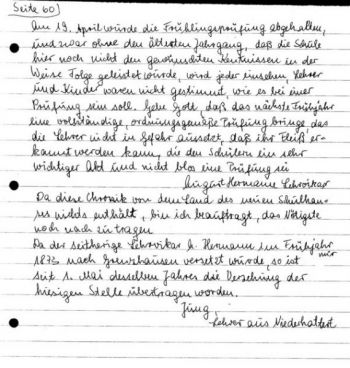 Seite 60)
Am 19. April würde die Frühlingsprüfung abgehalten,
und zwar ohne den ältesten Jahrgang, daß die Schule
hier noch nicht den gewünschten Kenntnissen in der
Weise Folge geleistet würde, wird jeder einsehen, Lehrer
und Kinder waren nicht gestimmt, wie es bei einer
Prüfung sein soll. Gebe Gott, daß das nächste Frühjahr
eine vollständige, ordnungsgemäße Prüfung bringe das
die Lehrer nicht in Gefahr aussetzt, daß ihr Fleiß er-
kannt werden kann, die den Schülern ein sehr
wichtiger Akt und nicht blos eine Prüfung sei
Hermann Lehrvikar
Da diese Chronik von dem Land des neuen Schulhau-
ses nichts enthält, bin ich beauftragt, das Nötigste
noch nach zu tragen.
Da der seitherige Lehrvikar H. Hermann im Frühjahr
1873 nach versetzt würde, so ist mir
seit 1. Mai desselben Jahres die Versehung der
hiesigen Stelle übertragen worden.
Jung,
Lehrer aus Niederhattert